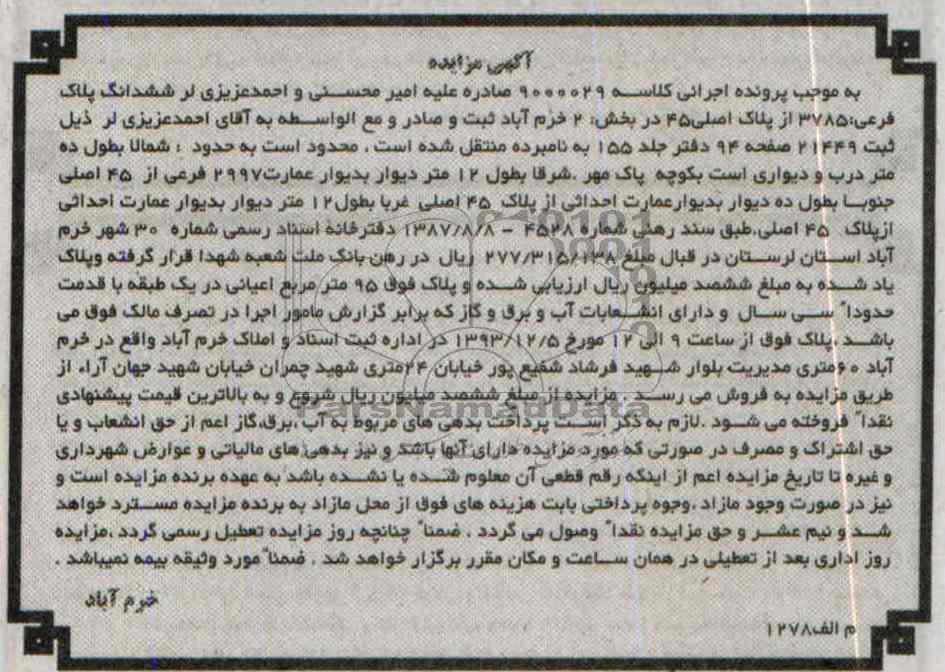 آگهی مزایده
به موجب پرونده اجرائی کلاسه ۹۰۰۰۰۲۹ صادره علیه امیر محسنی و احمدعزیزی لر ششدانگ پلاک
فرعی:۳۷۸۵ از پلاک اصلی۴۵ در بخش: ۲ خرم آباد ثبت و صادر و مع الواسطه به آقای احمدعزیزی لر ذیل
ثبت ۲۱۴۴۹ صفحه ۹۴ دفتر جلد ۱۵۵ به نامبرده منتقل شده است . محدود است به حدود : شمالا بطول ده
متر درب و دیواری است بکوچه پاک مهر .شرقا بطول ۱۲ متر دیوار بدیوار عمارت۲۹۹۷ فرعی از ۴۵ اصلی
جنوبا بطول ده دیوار بدیوارعمارت احداثی از پلاک ۴۵ اصلی غربا بطول۱۲ متر دیوار بدیوار عمارت احداثی
ازپلاک ۴۵ اصلی.طبق سند رهنی شماره ۴۵۲۸ – ۱۳۸۷/۸/۸ دفترخانه اسناد رسمی شماره ۳۰ شهر خرم
آباد استان لرستان در قبال مبلغ ۲۷۷/۳۱۵/۱۳۸ ریال در رهن بانک ملت شعبه شهدا قرار گرفته وپلاک
یاد شده به مبلغ ششصد میلیون ریال ارزیابی شده و پلاک فوق ۹۵ متر مربع اعیانی در یک طبقه با قدمت
حدوداً سی سال و دارای انشعابات آب و برق و گاز که برابر گزارش مامور اجرا در تصرف مالک فوق می
باشد .پلاک فوق از ساعت ۹ الی ۱۲ مورخ ۱۳۹۳/۱۲/۵ در اداره ثبت اسناد و املاک خرم آباد واقع در خرم
آباد ۶۰متری مدیریت بلوار شهید فرشاد شفیع پور خیابان ۲۴متری شهید چمران خیابان شهید جهان آراء از
طریق مزایده به فروش می رسد . مزایده از مبلغ ششصد میلیون ریال شروع و به بالاترین قیمت پیشنهادی
نقداً فروخته می شود .لازم به ذکر است پرداخت بدهی های مربوط به آب ،برق،گاز اعم از حق انشعاب و یا
حق اشتراک و مصرف در صورتی که مورد مزایده دارای آنها باشد و نیز بدهی های مالیاتی و عوارض شهرداری
و غیره تا تاریخ مزایده اعم از اینکه رقم قطعی آن معلوم شده یا نشده باشد به عهده برنده مزایده است و
نیز در صورت وجود مازاد ،وجوه پرداختی بابت هزینه های فوق از محل مازاد به برنده مزایده مسترد خواهد
شد و نیم عشر و حق مزایده نقداً وصول می گردد . ضمناً چنانچه روز مزایده تعطیل رسمی گردد ،مزایده
روز اداری بعد از تعطیلی در همان ساعت و مکان مقرر برگزار خواهد شد . ضمناً مورد وثیقه بیمه نمیباشد .
خرم آباد
م الف۱۲۷۸
ParsNamadData